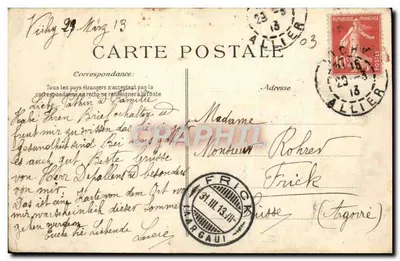 Vichy 29 März 13
29-3
13
ALLIER
03
CARTE POSTALE
Correspondance:
Tous les pays étrangers n'acceptent pas la
correspondance au recto. se renseigner à la Poste.
Adresse
REPUBLIQUE FRANÇAISE
29-3
13
ALLIER
Liebe & Familie
Habe Ihren Brief erhalten
freut mir zu wissen das
Gesundheit sind Bei uns
es auch gut Beste Grüsse
von Herr besonders
von mir.
Das ist eine Karte von dem Ort wo
mir wahrscheinlich diesen Sommer
gehen werden
Euch liebende
Madame
Monsieur Rohrer
Frick
Suisse (Argovie)
FRICK
31.III.13.
(AARGAU)
CPARHAMA